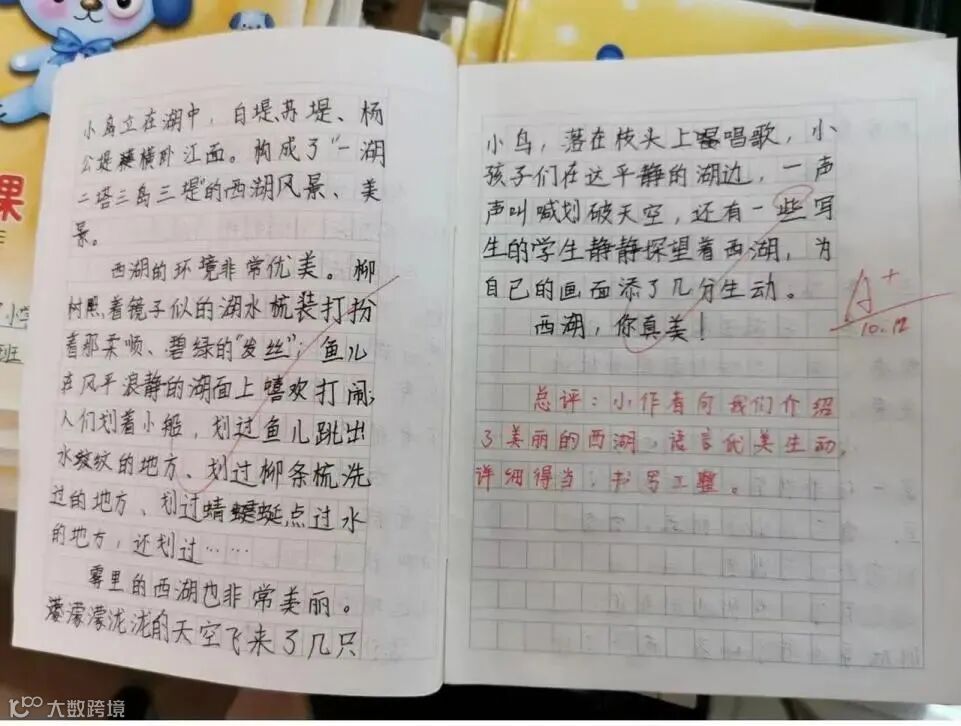 小岛立在湖中，白堤、苏堤、杨
公堤横卧江面。构成了“一湖
二塔三岛三堤”的西湖风景、美
景。
西湖的环境非常优美。柳
树照着镜子似的湖水梳装打扮
着那柔顺、碧绿的“发丝”；鱼儿
在风平浪静的湖面上嬉欢打闹，
人们划着小船，划过鱼儿跳出
水纹纹的地方、划过柳条梳洗
过的地方、划过蜻蜓点过水
的地方，还划过……
雾里的西湖也非常美丽。
濛濛泷泷的天空飞来了几只
小鸟，落在枝头上唱歌，小
孩子们在这平静的湖边，一声
声叫喊划破天空，还有一些写
生的学生静静探望着西湖，为
自己的画面添了几分生动。
西湖，你真美！
A+
10.12
总评：小作者向我们介绍
了美丽的西湖，语言优美生动，
详细得当；书写工整。
课
小学
班
大数跨境